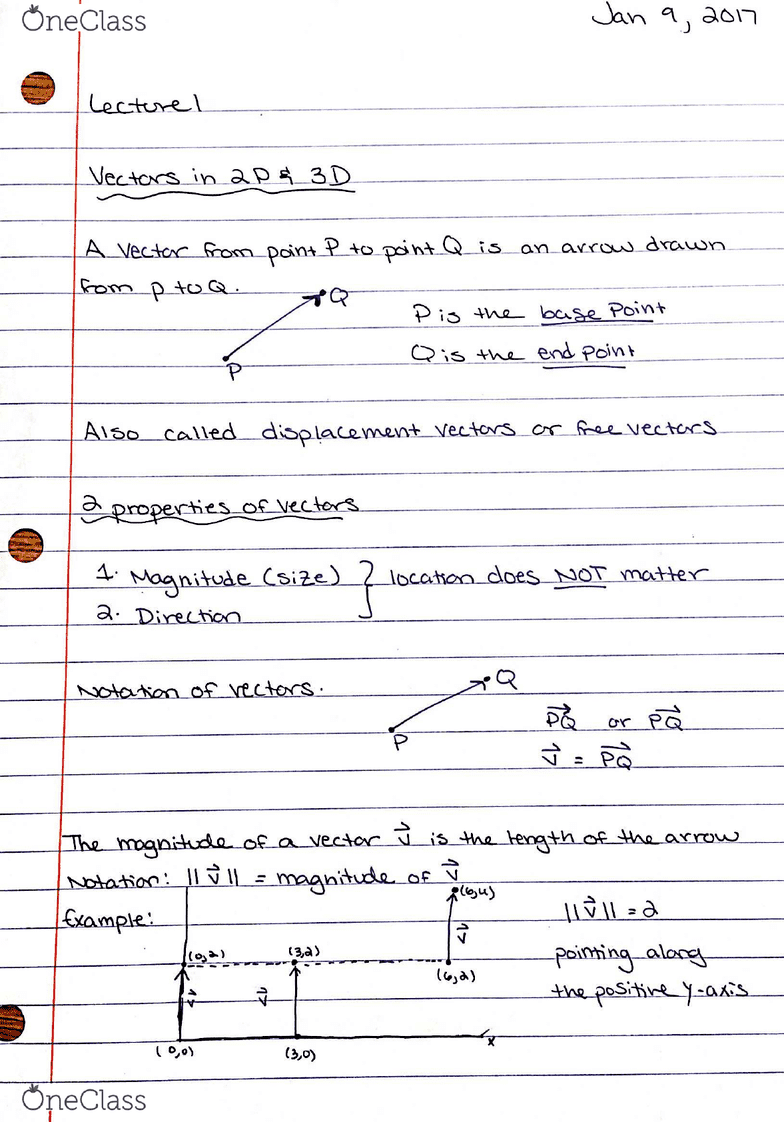 OneClass
Jan 9, 2017
Lecture 1
Vectors in 2D & 3D
A vector from point P to point Q is an arrow drawn
from p to Q.
Q
P
P is the base point
Q is the end point
Also called displacement vectors or free vectors
2 properties of vectors
1. Magnitude (size) } location does NOT matter
2. Direction
Notation of vectors.
Q
P
P⃗Q or P⃗Q
v⃗ = P⃗Q
The magnitude of a vector v⃗ is the length of the arrow
Notation: ||v⃗|| = magnitude of v⃗
Example:
(6,4)
||v⃗|| = 2
v⃗
(0,2) (3,2)
pointing along
(6,2)
the positive y-axis
v⃗ v⃗
x
(0,0) (3,0)
OneClass